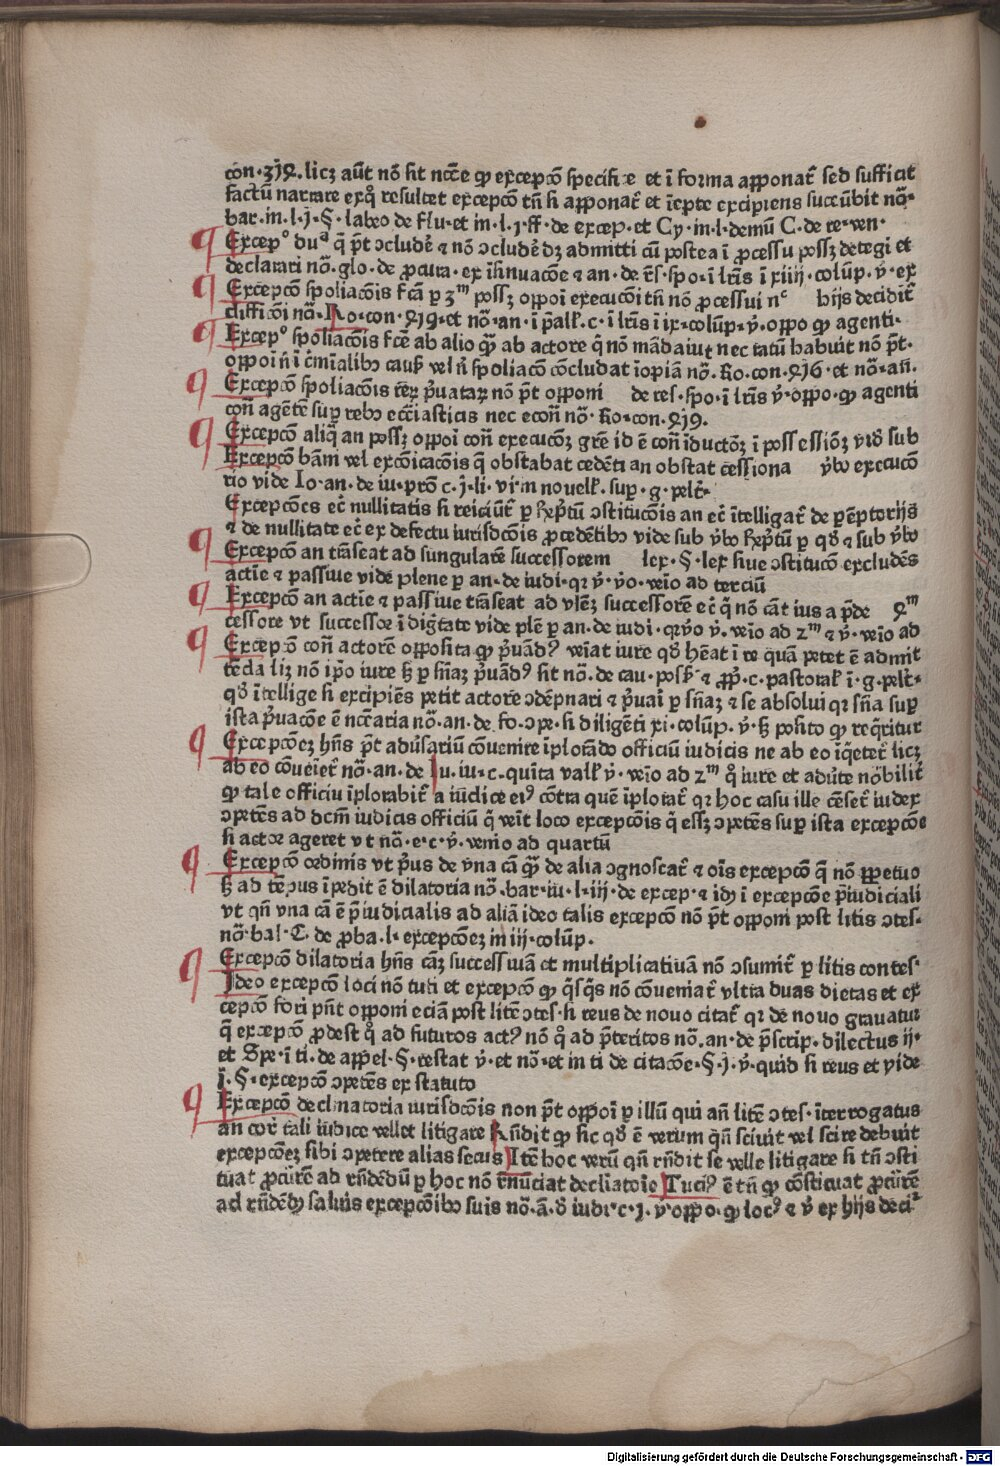 con·319. licꝫ aūt nō sit nccē ꝙ excepcō specifice et ī forma apponat̄ sed sufficit
factū narrare exq̊ resultet excepcō tn̄ si apponat̄ et īepte excipiens succūbit nā·
bar·in·l·j·§·labeo de flu·et in·l·j·ff·de excep·et Cy·in·l·demū C·de re·ven·
Excep⁰ duᵃ q̄ pt̄ ↄcludē & nō ↄcludē dꝫ admitti cū postea ī ꝓcessu possꝫ detegi et
declarari nō·glo·de ꝓcura·ex īsinuacōe & an·de rēs·spo·ī lr̄is ī xiiij·colūp·v̄·ex
Excepcō spoliacōis fcā p 3ᵐ possꝫ oppoī execucōi tn̄ nō ꝓcessui nᶜ hijs decidit̄
difficōi nā·Ro·con·419·et nō·an·ī palł·c·ī lr̄is ī ix·colūp·v̄·oppo ꝙ agenti·
Excep⁰ spoliacōis fcē ab alio ꝙ̄ ab actore q̄ nō mādauit nec ratū habuit nō pt̄·
oppoī n̄ ī c̄mīalibꝰ causꝭ vel n̄ spoliacō cōcludat īopiā nō·Ro·con·416·et nō·an̄·
Excepcō spoliacōis rēꝝ p̄uataꝝ nō pt̄ opponi de res·spo·ī lr̄is v̄·oppo·ꝙ agenti
con̄ agētē suꝑ rebꝰ ecc̄iasticis nec econ̄ nō·Ro·con·419·
Excepcō aliq̄ an possꝫ oppoī con̄ execucōꝫ gr̄e id ē con̄ īductōꝫ ī possessiōꝫ v̄iđ sub
Excepcō bāni vel excōicacōis q̄ obstabat cedēti an obstat cessiona v̄bo execucō
rio vide Io·an·de iu·prō c·j·li·vi in nouelł·suꝑ·g·pelt̄·
Excepcōes ec̄ nullitatis si reiciūt̄ ꝑ rep̄tū ↄstitucōis an ec̄ ītelligat̄ de pēptorijs
& de nullitate ec̄ ex defectu iurisdcōis ꝓcedētibꝰ vide sub v̄bo Rep̄tū ꝑ qđ & sub v̄bo
Excepcō an trāseat ad singularē successorem lex·§·lex siue ↄstitucō excludēs
actie & passiue vide plene ꝑ an·de iudi·qꝛ v̄·v̄o·veīo ad terciū
Excepcō an actīe & passiue trāseat ad vlēꝫ successorē ec̄ q̄ nō cāt ius a p̄de 4ᵐ
cessore vt successoꝛ ī digtate vide plē ꝑ an·de iudi·qꝛv̄o v̄·veīo ad 2ᵐ & v̄·veīo ad
Excepcō con̄ actorē opposita ꝙ p̄uādꝰ veīat iure qđ hēat ī re quā petet ē admit
tēda licꝫ nō ip̄o iure sꝫ ꝑ sn̄iaꝫ p̄uādꝰ sit nō·de cau·posꝭ & ꝓp̄·c·pastoral ī·g·pelt̄·
qđ ītellige si excipiēs petit actorē ↄdēpnari & p̄uari ꝑ sn̄iaꝫ & se absolui qꝛ sn̄ia suꝑ
ista p̄uacōe ē nccēaria nō·an·de fo·ↄpe·si diligēti xi·colūp·v̄·sꝫ posito ꝙ req̄ritur
Excepcōeꝫ hn̄s pt̄ adūsariū cōuenire īplorādo officiū iudicis ne ab eo īq̄etet̄ licꝫ
ab eo cōueīet̄ nō·an·de Iu·iu·c·quīta vall v̄·veīo ad 2ᵐ q̊ iure et adūte nōbilit̄
ꝙ tale officiū īplorabit̄ a iūdice eiꝰ cōtra quē īplorat̄ qꝛ hoc casu ille cēset̄ iudex
ↄpetēs ad dcm̄ iudicis officiū q̄ veīt loco excepcōis q̄ essꝫ ↄpetēs suꝑ ista excepcōe
si actoꝛ ageret vt nō·e·c·v̄·venio ad quartū
Excepcō ordinis vt p̄us de vna cā ꝙ̄ de alia ↄgnoscat̄ & oīs excepcō q̄ nō ꝑpetuo
sꝫ ad tēpus īpedit ē dilatoria nō·bar·iu·l·iij·de excep·& idꝫ ī excepcōe p̄iudiciali
vt qn̄ vna cā ē p̄iudicialis ad aliā ideo talis excepcō nō pt̄ opponi post litis ↄtes·
nō·bal·C·de ꝓba·l·excepcōeꝫ in iij·colūp·
Excepcō dilatoria hn̄s cāꝫ successiuā et multiplicatiuā nō ↄsumit̄ ꝑ litis contes·
Ideo excepcō loci nō tuti et excepcō ꝙ q̄sq̄s nō cōueniat̄ vltra duas dietas et ex
cepcō fori pn̄t opponi eciā post litē ↄtes·si reus de nouo citat̄ qꝛ de nouo grauatur
q̄ excepcō ꝓdest q̊ ad futuros actꝰ nō q̊ ad p̄teritos nō·an·de p̄scrip·dilectus ij·
et Spe·ī ti·de appel·§·restat v̄·et nō·et in ti de citacōe·§·j·v̄·quid si reus et vide
j·§·excepcō ↄpetēs ex statuto
Excepcō declinatoria iurisdcōis non pt̄ oppoī ꝑ illū qui an̄ litē ↄtes·īterrogatus
an cor̄ tali iudice vellet litigare Rn̄dit ꝙ sic qđ ē verum qn̄ sciuit vel scire debuit
excepcōeꝫ sibi ↄpetere alias secus Itē hoc verū qn̄ rn̄dit se velle litigare si tn̄ ↄsti
tuat ꝓcūrē ad rn̄dēdū ꝑ hoc nō rn̄ūciat decliatoīe Tuciꝰ ē tn̄ ꝙ cōsticuat ꝓcūrē
ad rn̄dēdꝫ saluis excepcōibꝰ suis nō·ā·đ iudi·c·j·v̄·oppo·ꝙ locꝰ & v̄ ex hijs deciᵗ
Digitalisierung gefördert durch die Deutsche Forschungsgemeinschaft - DFG